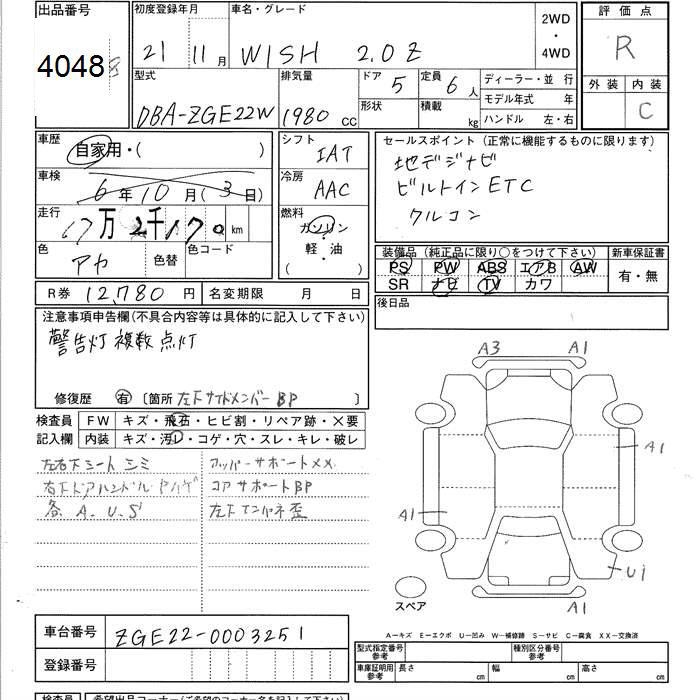 出品番号 初度登録年月 車名・グレード 2WD 評価点
4048 21 11月 WISH 2.0Z ・ 4WD R
型式 排気量 ドア 5 定員 6人 ディーラー・並 行 外装 内装
DBA-ZGE22W 1980 cc 形状 積載 kg モデル年式 年 C
ハンドル 左・右
車歴 自家用・( ) シフト IAT セールスポイント (正常に機能するものに限ります)
車検 6年10月(3日) 冷房 AAC 地デジナビ
ビルトインETC
走行 17万2千170km 燃料 ガソリン クルコン
色 アカ 色替 色コード ・ 軽・油 ( ) 装備品 (純正品に限り○をつけて下さい) 新車保証書
PS PW ABS エアB AW 有・無
SR ナビ TV カワ
R券 12,780 円 名変期限 月 日 後日品
注意事項申告欄(不具合内容等は具体的に記入して下さい)
警告灯複数点灯
A3 A1
修復歴 有 〔箇所 左下サイドメンバーBP 〕
検査員 FW キズ・飛石・ヒビ割・リペア跡・X要
記入欄 内装 キズ・汚レ・コゲ・穴・スレ・キレ・破レ
A1
左右下シートシミ アッパーサポートXX
コアサポートBP
各A.U.S
A1
U1
スペア A1
車台番号 ZGE22-0003251 A-キズ E-エクボ U-凹み W-補修跡 S-サビ C-腐食 XX-交換済
登録番号 型式指定番号 参考 種別区分番号 参考
車庫証明用 参考 長さ cm 幅 cm 高さ cm
検査員 希望出品コーナー(ご希望のコーナー名を記入して下さい)